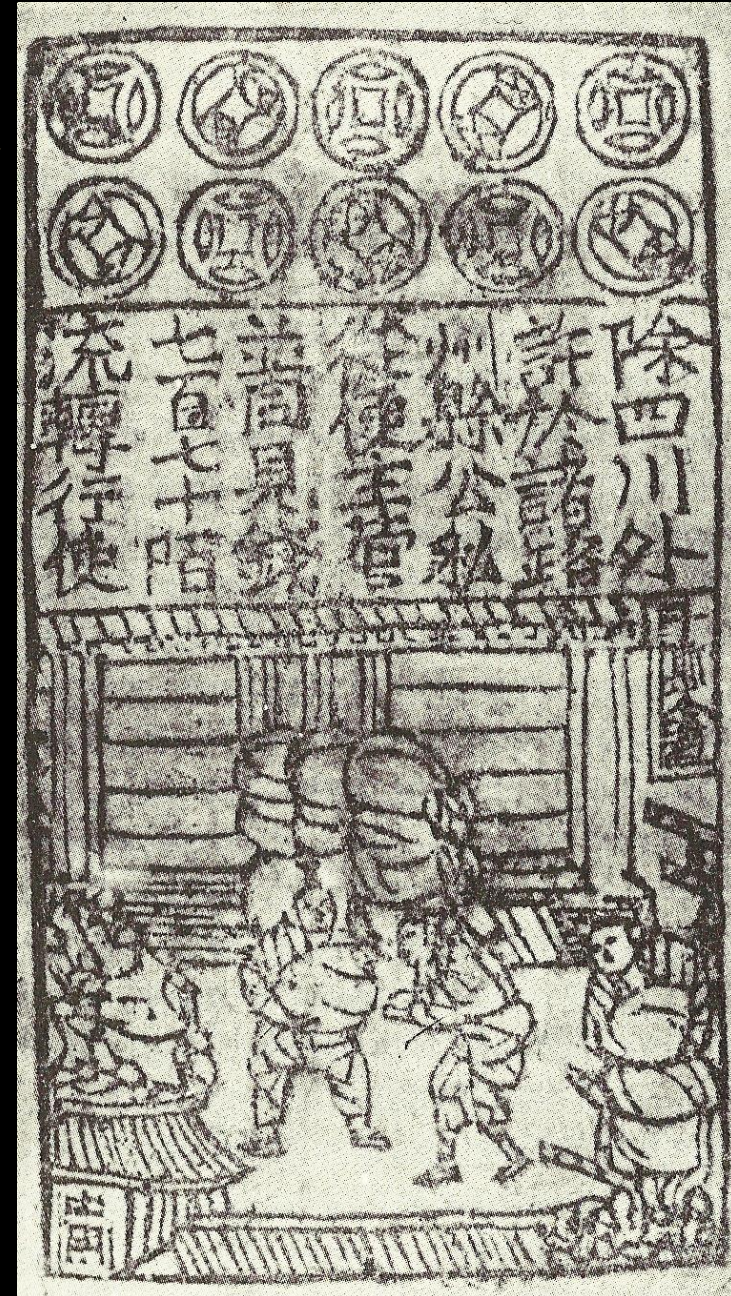 除四川外
許扵諸路
州縣公私
從便主管
並同見錢
七百七十陌
流轉行使
千斯倉